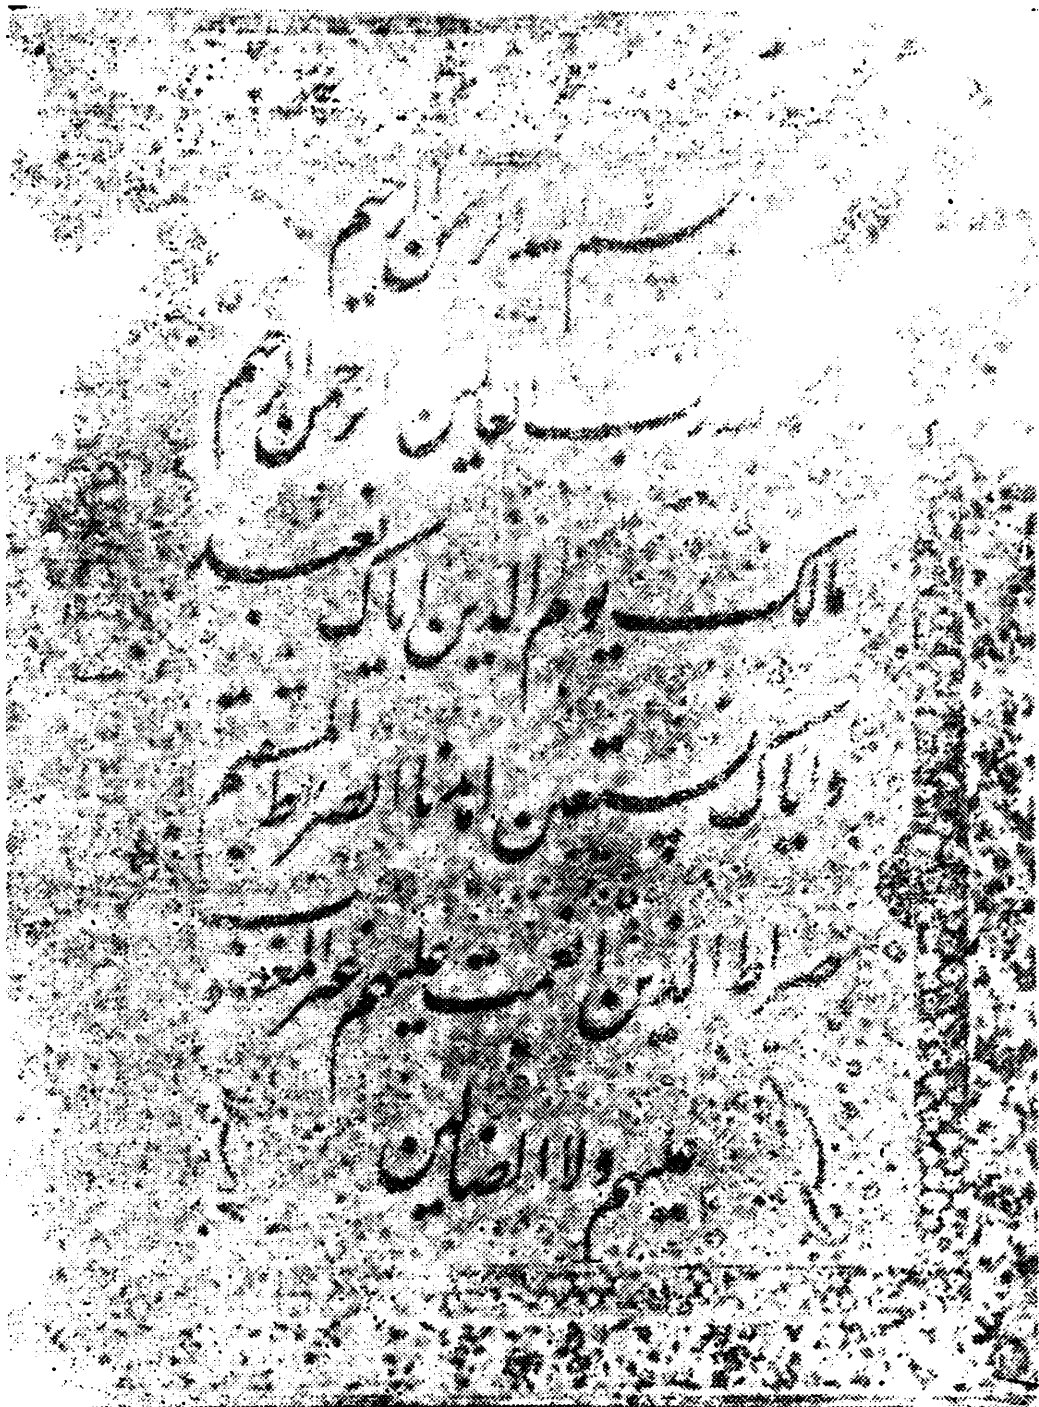 بسم الله الرحمن الرحيم
رب العالمين الرحمن الرحيم
مالک يوم الدين اياک نعبد
واياک نستعين اهدنا الصراط المستقيم
صراط الذين انعمت عليهم غير المغضوب
عليهم ولا الضالين